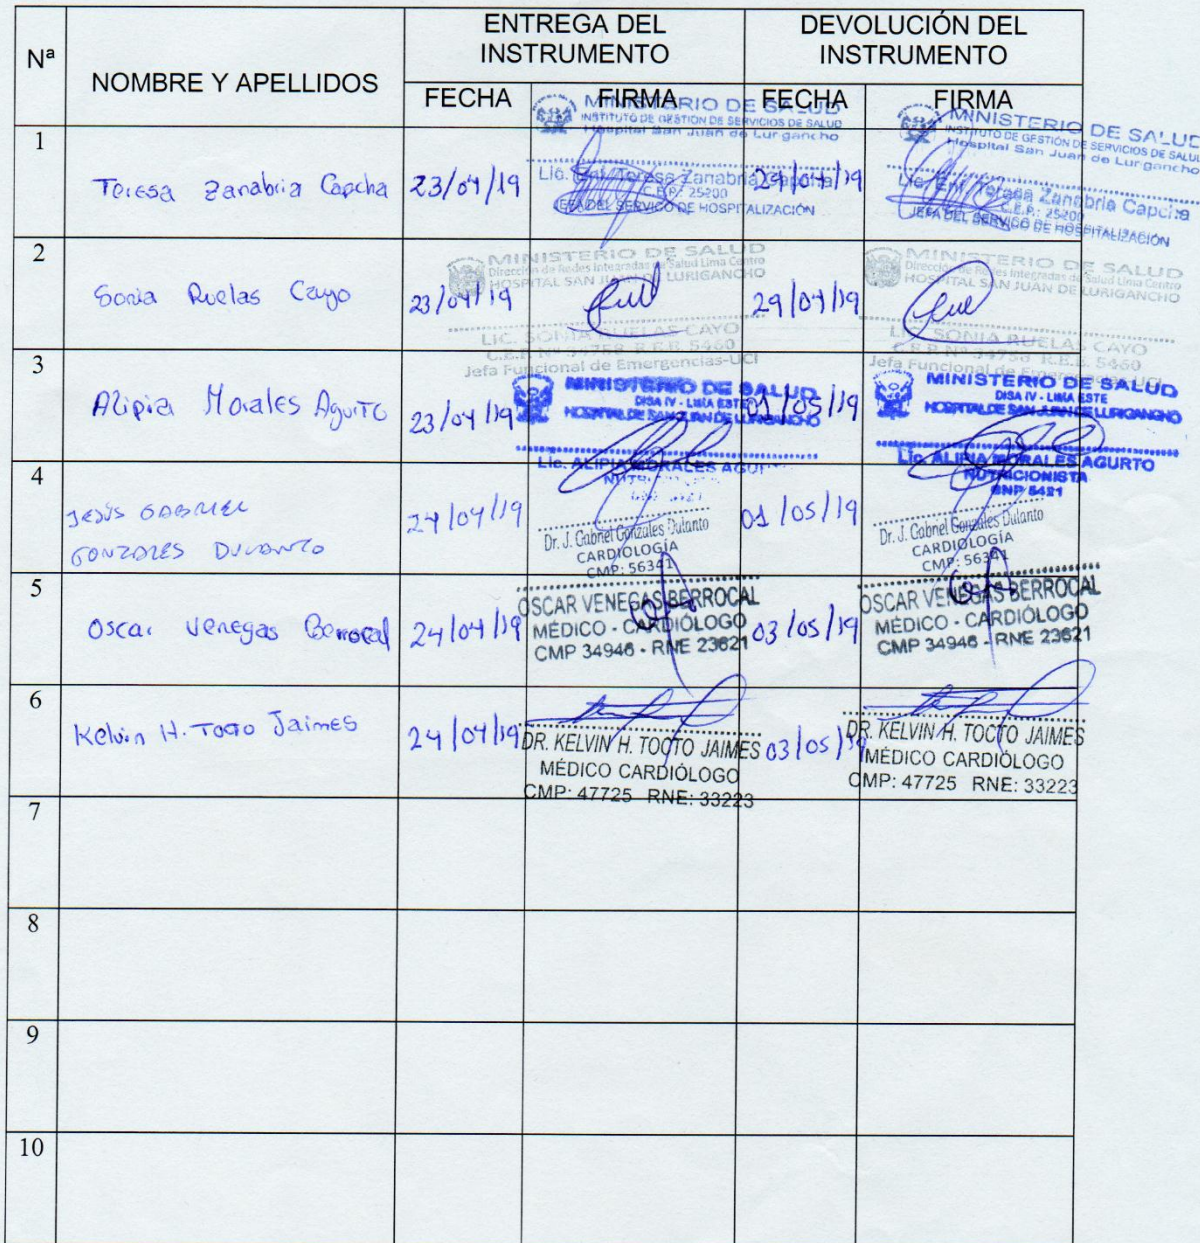 Nª
NOMBRE Y APELLIDOS
ENTREGA DEL
INSTRUMENTO
DEVOLUCIÓN DEL
INSTRUMENTO
FECHA
FIRMA
FECHA
FIRMA
1
Teresa Zanabria Capcha
23/04/19
MINISTERIO DE SALUD
INSTITUTO DE GESTIÓN DE SERVICIOS DE SALUD
Hospital San Juan de Lurigancho
Lic. Enf. Teresa Zanabria Capcha
C.E.P.: 25200
JEFA DEL SERVICO DE HOSPITALIZACIÓN
29/04/19
MINISTERIO DE SALUD
INSTITUTO DE GESTIÓN DE SERVICIOS DE SALUD
Hospital San Juan de Lurigancho
Lic. Enf. Teresa Zanabria Capcha
C.E.P.: 25200
JEFA DEL SERVICO DE HOSPITALIZACIÓN
2
Sonia Ruelas Cayo
23/04/19
MINISTERIO DE SALUD
Dirección de Redes Integradas de Salud Lima Centro
HOSPITAL SAN JUAN DE LURIGANCHO
LIC. SONIA RUELAS CAYO
C.E.P. Nº 34758 R.E.E. 5460
Jefa Funcional de Emergencias-UCI
29/04/19
MINISTERIO DE SALUD
Dirección de Redes Integradas de Salud Lima Centro
HOSPITAL SAN JUAN DE LURIGANCHO
LIC. SONIA RUELAS CAYO
C.E.P. Nº 34758 R.E.E. 5460
Jefa Funcional de Emergencias-UCI
3
Alipia Morales Agurto
23/04/19
MINISTERIO DE SALUD
DISA IV - LIMA ESTE
HOSPITAL DE SAN JUAN DE LURIGANCHO
Lic. ALIPIA MORALES AGURTO
01/05/19
MINISTERIO DE SALUD
DISA IV - LIMA ESTE
HOSPITAL DE SAN JUAN DE LURIGANCHO
Lic. ALIPIA MORALES AGURTO
NUTRICIONISTA
CNP 5421
4
JESÚS GABRIEL
GONZALES DULANTO
24/04/19
Dr. J. Gabriel Gonzales Dulanto
CARDIOLOGÍA
CMP: 56341
01/05/19
Dr. J. Gabriel Gonzales Dulanto
CARDIOLOGÍA
CMP: 56341
5
Oscar Venegas Berrocal
24/04/19
OSCAR VENEGAS BERROCAL
MÉDICO - CARDIÓLOGO
CMP 34946 - RNE 23621
03/05/19
OSCAR VENEGAS BERROCAL
MÉDICO - CARDIÓLOGO
CMP 34946 - RNE 23621
6
Kelvin H. Tocto Jaimes
24/04/19
DR. KELVIN H. TOCTO JAIMES
MÉDICO CARDIÓLOGO
CMP: 47725 RNE: 33223
03/05/19
DR. KELVIN H. TOCTO JAIMES
MÉDICO CARDIÓLOGO
CMP: 47725 RNE: 33223
7
8
9
10